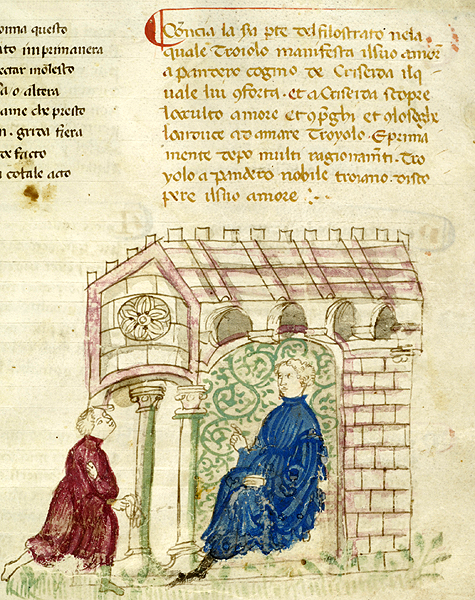 onna questo
ato in primauera
ectar molesto
a o altera
ame che presto
n. grida fiera
facto
cotale acto
Comĩcia la 2a pte del filostrato nela
quale Troiolo manifesta il suo amor̃
a pandero cogino de Criseida il q
uale lui 9forta. et a Criseida scopre
loccolto amore et 9 p̃ghi et 9 loseghe
la induce ad amare Troyolo. E prima
mente dopo multi ragionam̃ti. Tro
yolo a pandero nobile troiano. disco
pere il suo amore :~